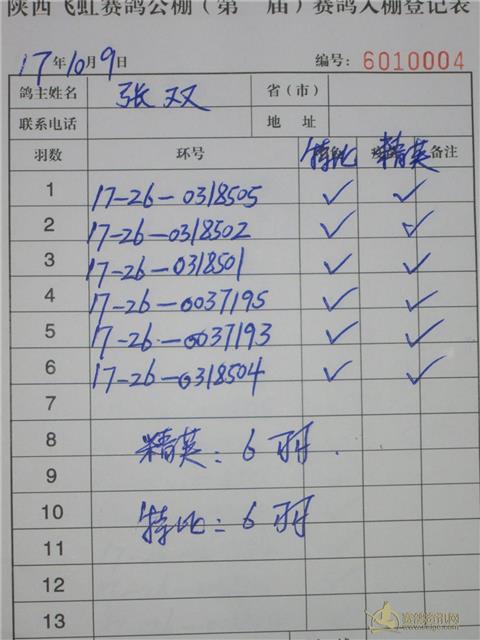 陕西飞虹赛鸽公棚（第 届）赛鸽入棚登记表
17年10月9日 编号：6010004
鸽主姓名 张双 省（市）
联系电话 地 址
羽数 环号 特比 精英 备注
1 17-26-0318505 ✓ ✓
2 17-26-0318502 ✓ ✓
3 17-26-0318501 ✓ ✓
4 17-26-0037195 ✓ ✓
5 17-26-0037193 ✓ ✓
6 17-26-0318504 ✓ ✓
7
8 精英：6羽.
9
10 特比：6羽
11
12
13